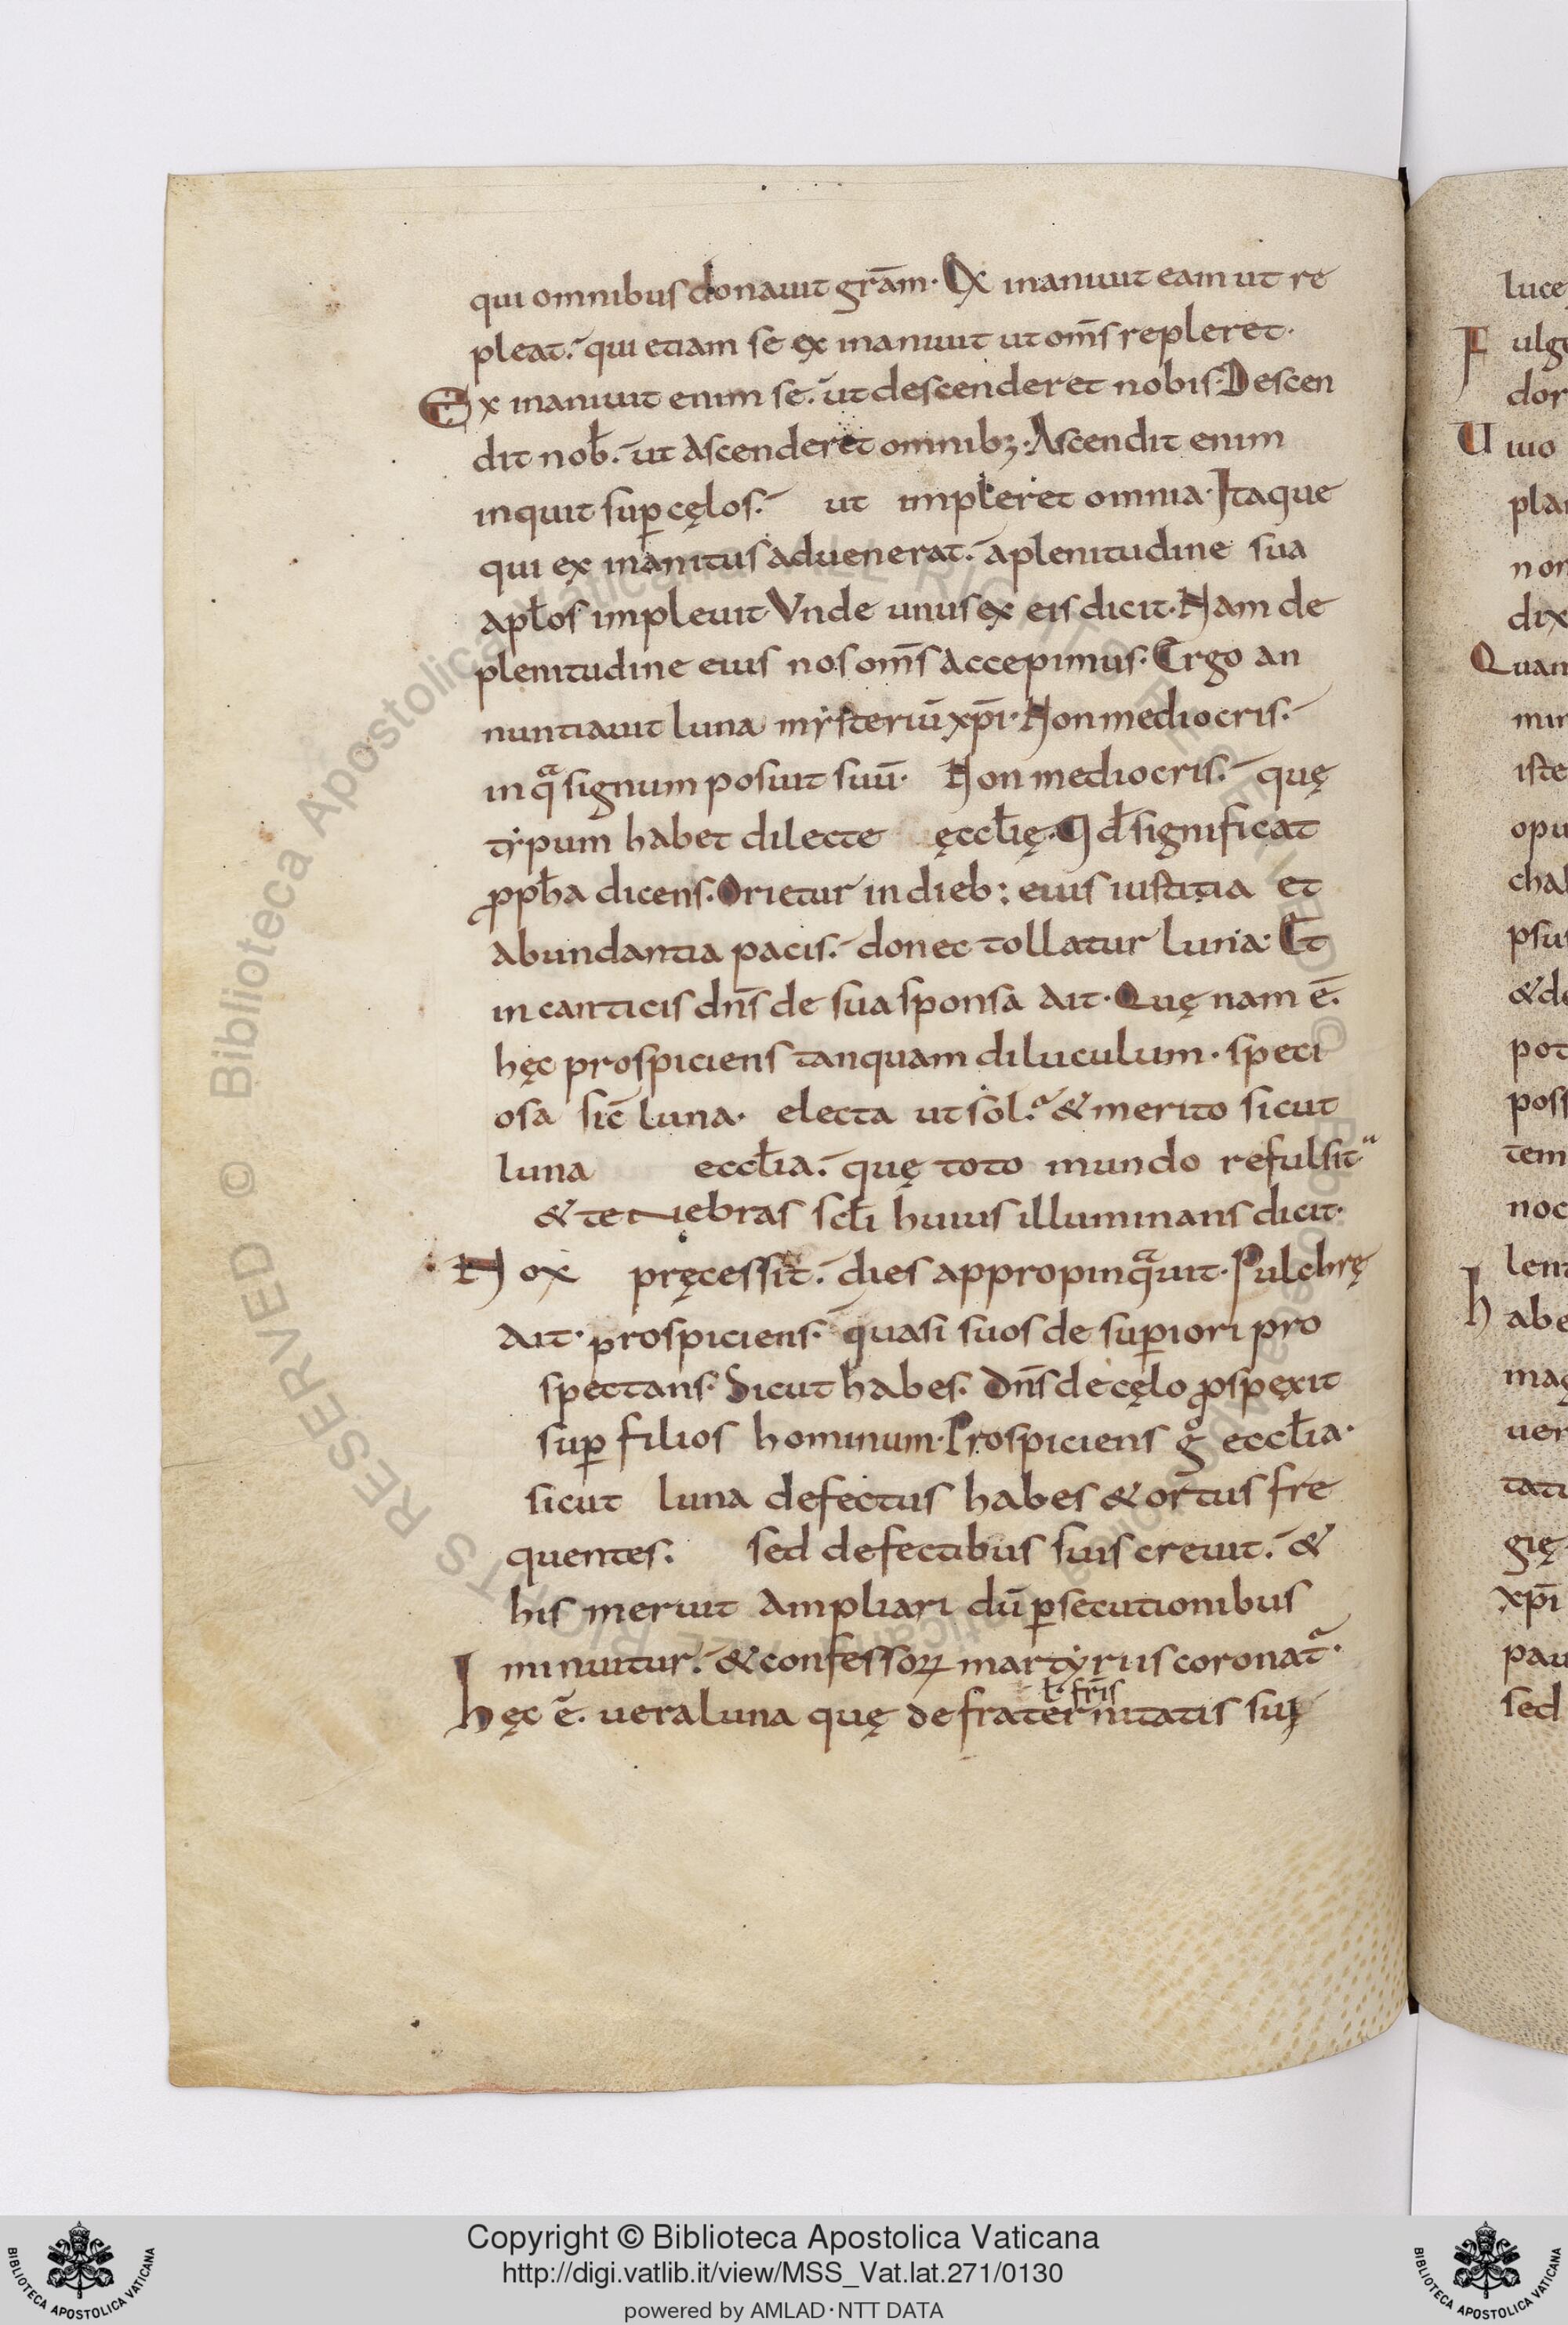 qui omnibus donauit gr̄am· Ex inaniuit eam ut re
pleat. qui etiam se ex inaniuit ut om̄s repleret·
Ex inaniuit enim se. ut descenderet nobis· Descen
dit nob̄. ut ascenderet omnibꝫ· Ascendit enim
inquit suꝑ cęlos. ut impleret omnia· Itaque
qui ex inanitus aduenerat. a plenitudine sua
apl̄os impleuit· Vnde unus ex eis dicit· Nam de
plenitudine eius nos om̄s accepimus· Ergo an
nuntiauit luna mẏsteriū xp̄i· Non mediocris.
in qͣ signum posuit suū· Non mediocris. quę
tẏpum habet dilecte ęccl̄ię· Qd̄ significat
ꝓpħa dicens· Orietur in dieb; eius iustitia et
abundantia pacis. donec tollatur luna· Et
in canticis dn̄s de sua sponsa ait· Quę nam ē.
hęc prospiciens tanquam diluculum· speci
osa sic̄ luna· electa ut sol. & merito sicut
luna eccl̄ia. quę toto mundo refulsit
& tenebras scl̄i huius illuminans dicit·
Nox pręcessit. dies appropinqͣuit· Pulchrę
ait· prospiciens. quasi suos de suꝑiori pro
spectans· Sicut habes. Dn̄s de cęlo ꝓspęxit
suꝑ filios hominum· Prospiciens gͦ eccl̄ia·
sicut luna defectus habes & ortus fre
quentes. sed defectibus suis creuit. &
his meruit ampliari dū ꝑsecutionibus
minuitur. & confessoꝝ martẏriis coronat᷑·
ł fr̄is
hęc ē. uera luna quę de fraternitatis suę
luce
Fulg
dor
Uiuo
pla
non
dix
Quam
min
iste
opu
chal
psu
&de
pot
poss
tem
noc
lent
habe
mag
uer
tatu
gię
xp̄i
pau
sed
Copyright © Biblioteca Apostolica Vaticana
http://digi.vatlib.it/view/MSS_Vat.lat.271/0130
powered by AMLAD·NTT DATA
BIBLIOTECA APOSTOLICA VATICANA
BIBLIOTECA APOSTOLICA VATICANA